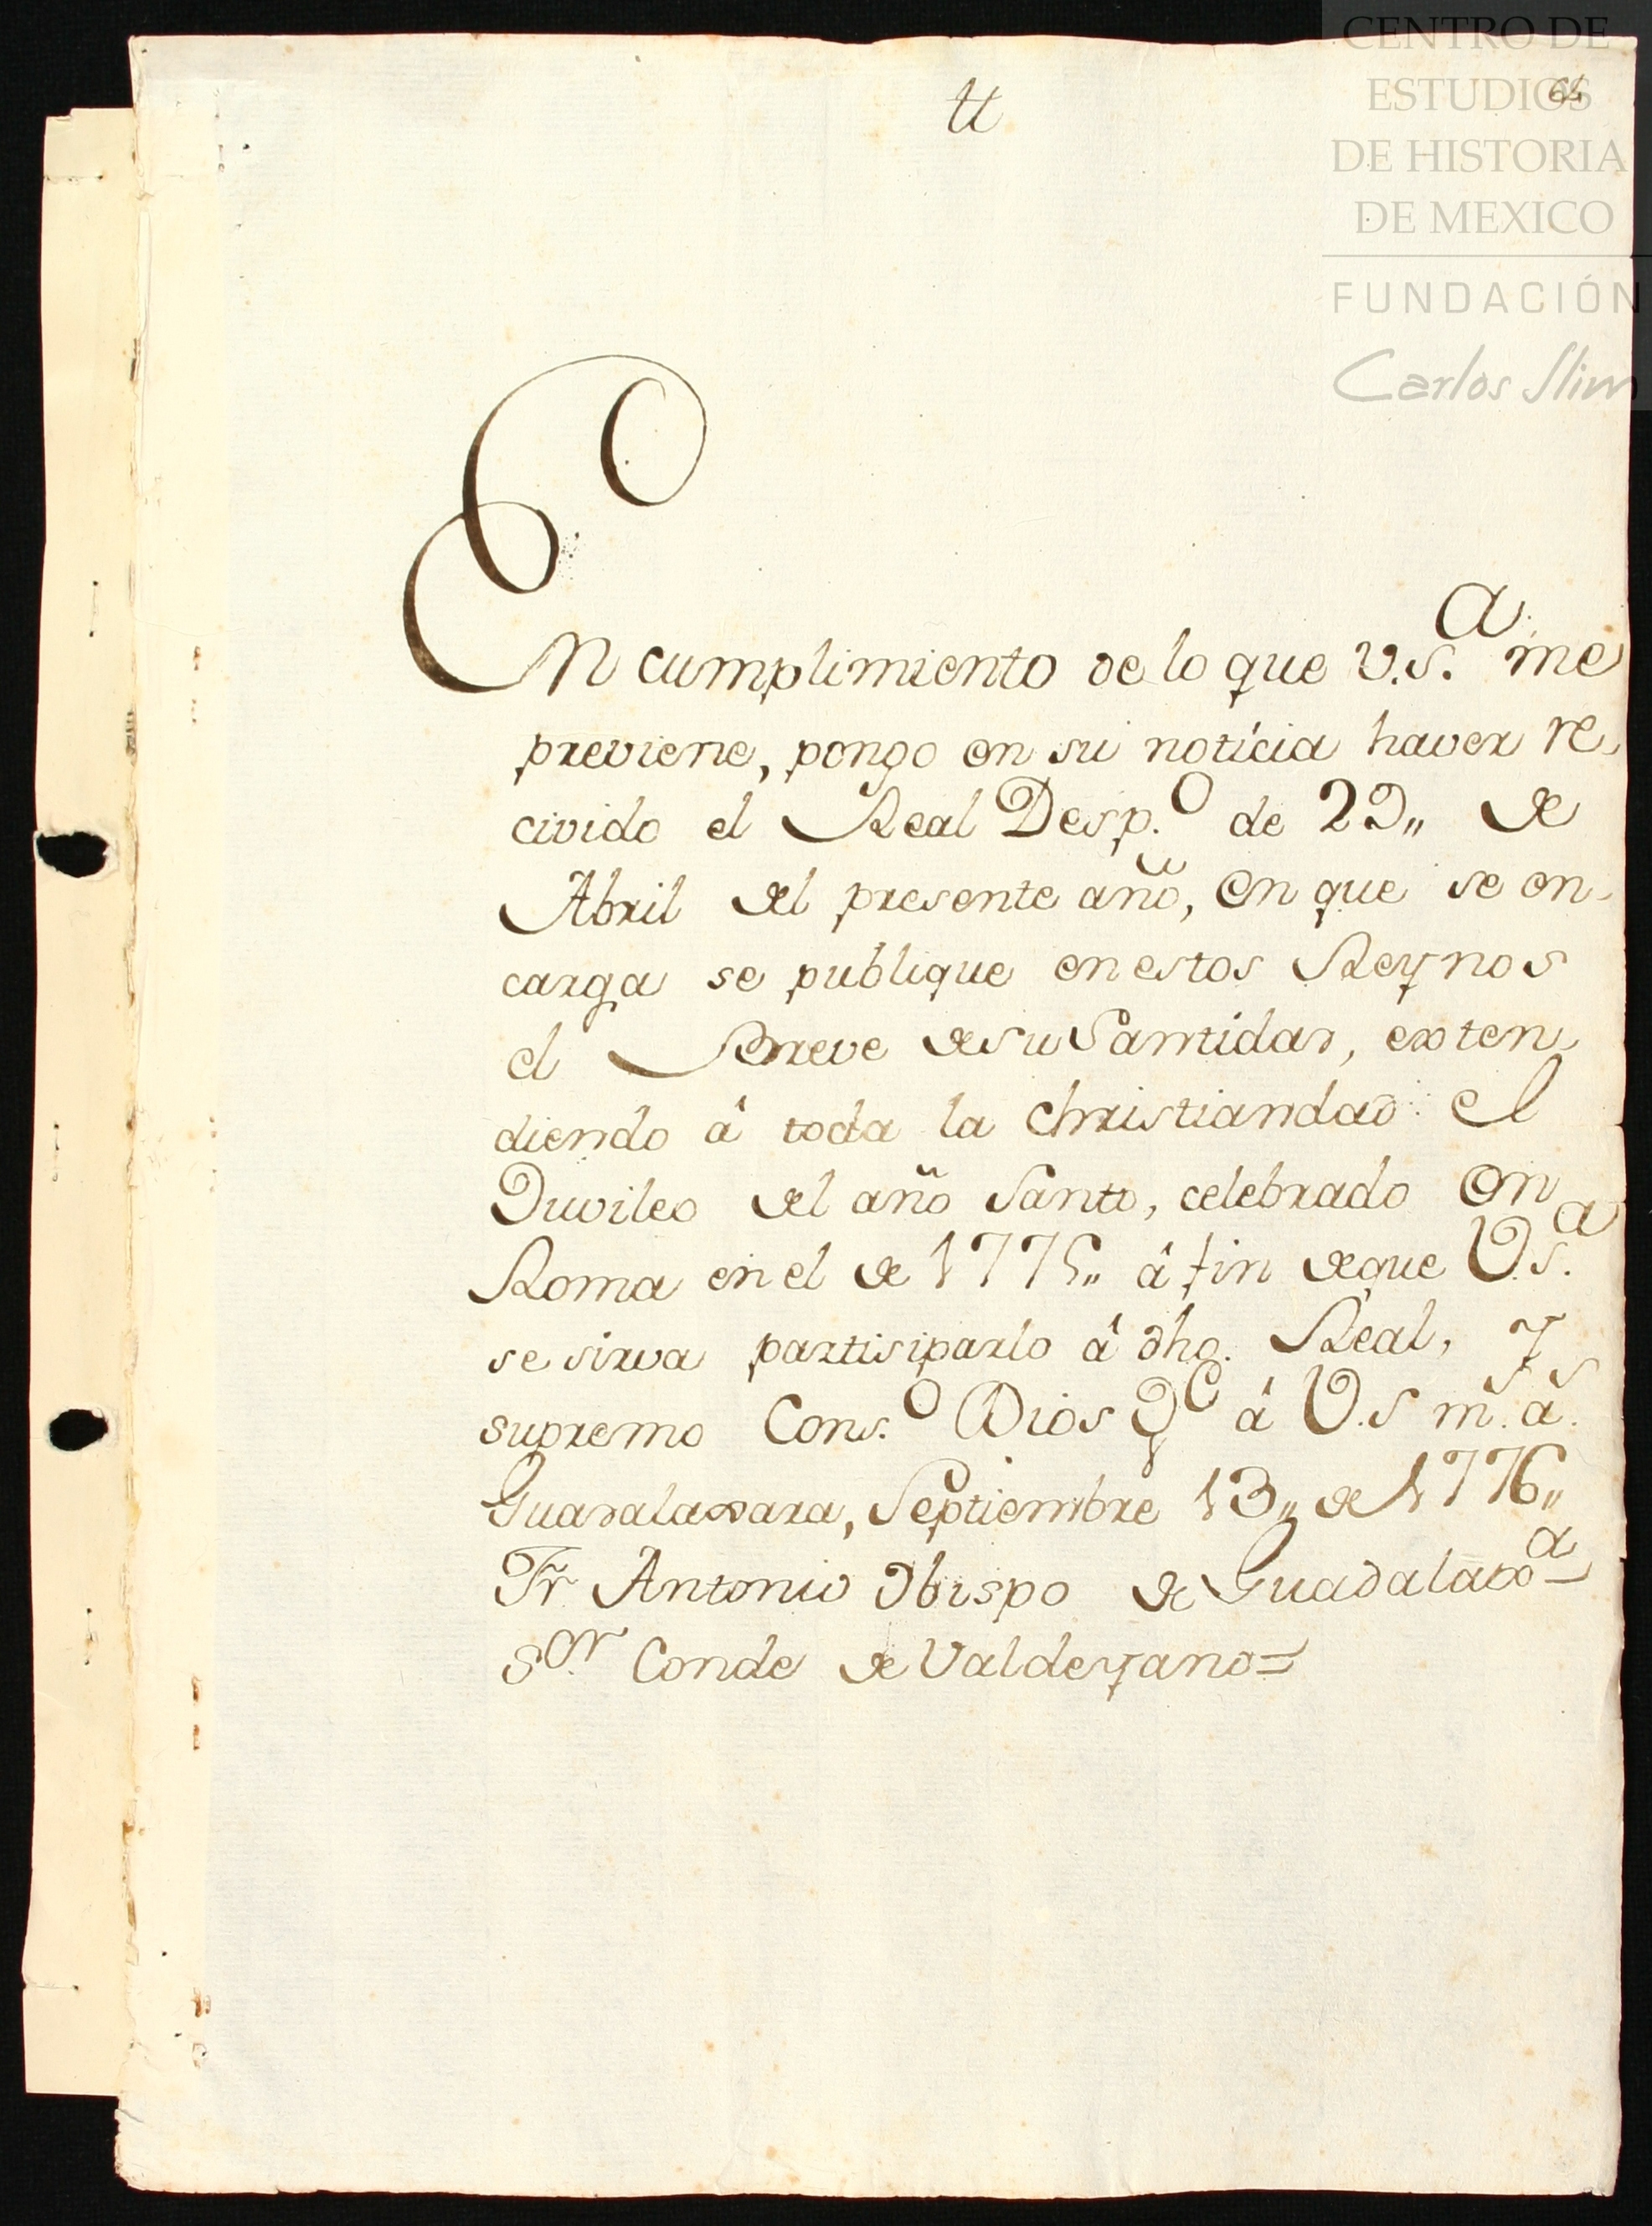 CENTRO DE
ESTUDIOS
DE HISTORIA
DE MEXICO
FUNDACIÓN
Carlos Slim
64
En cumplimiento de lo que V.S.ª me
previene, pongo en su noticia haver re-
civido el Real Desp.º de 29,, de
Abril del presente año, en que se en-
carga se publique en estos Reynos
el Breve de su Santidad, exten-
diendo â toda la christiandad el
Juvileo del año Santo, celebrado en
Roma en el de 1775,, â fin de que V.S.ª
se sirva partisiparlo â dho. Real, y
supremo Cons.º Dios g.e â V.S m.s a.s
Guadalaxara, Septiembre 13,, de 1776,,
Fr Antonio Obispo de Guadalax.ª =
S.or Conde de Valdeyano =